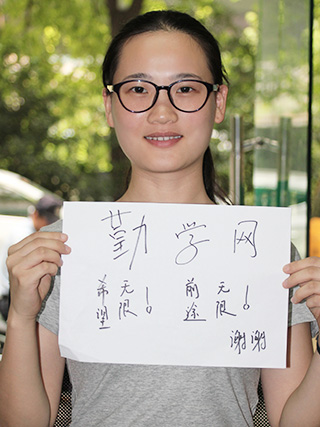 勤学网
希望无限! 前途无限!
谢谢